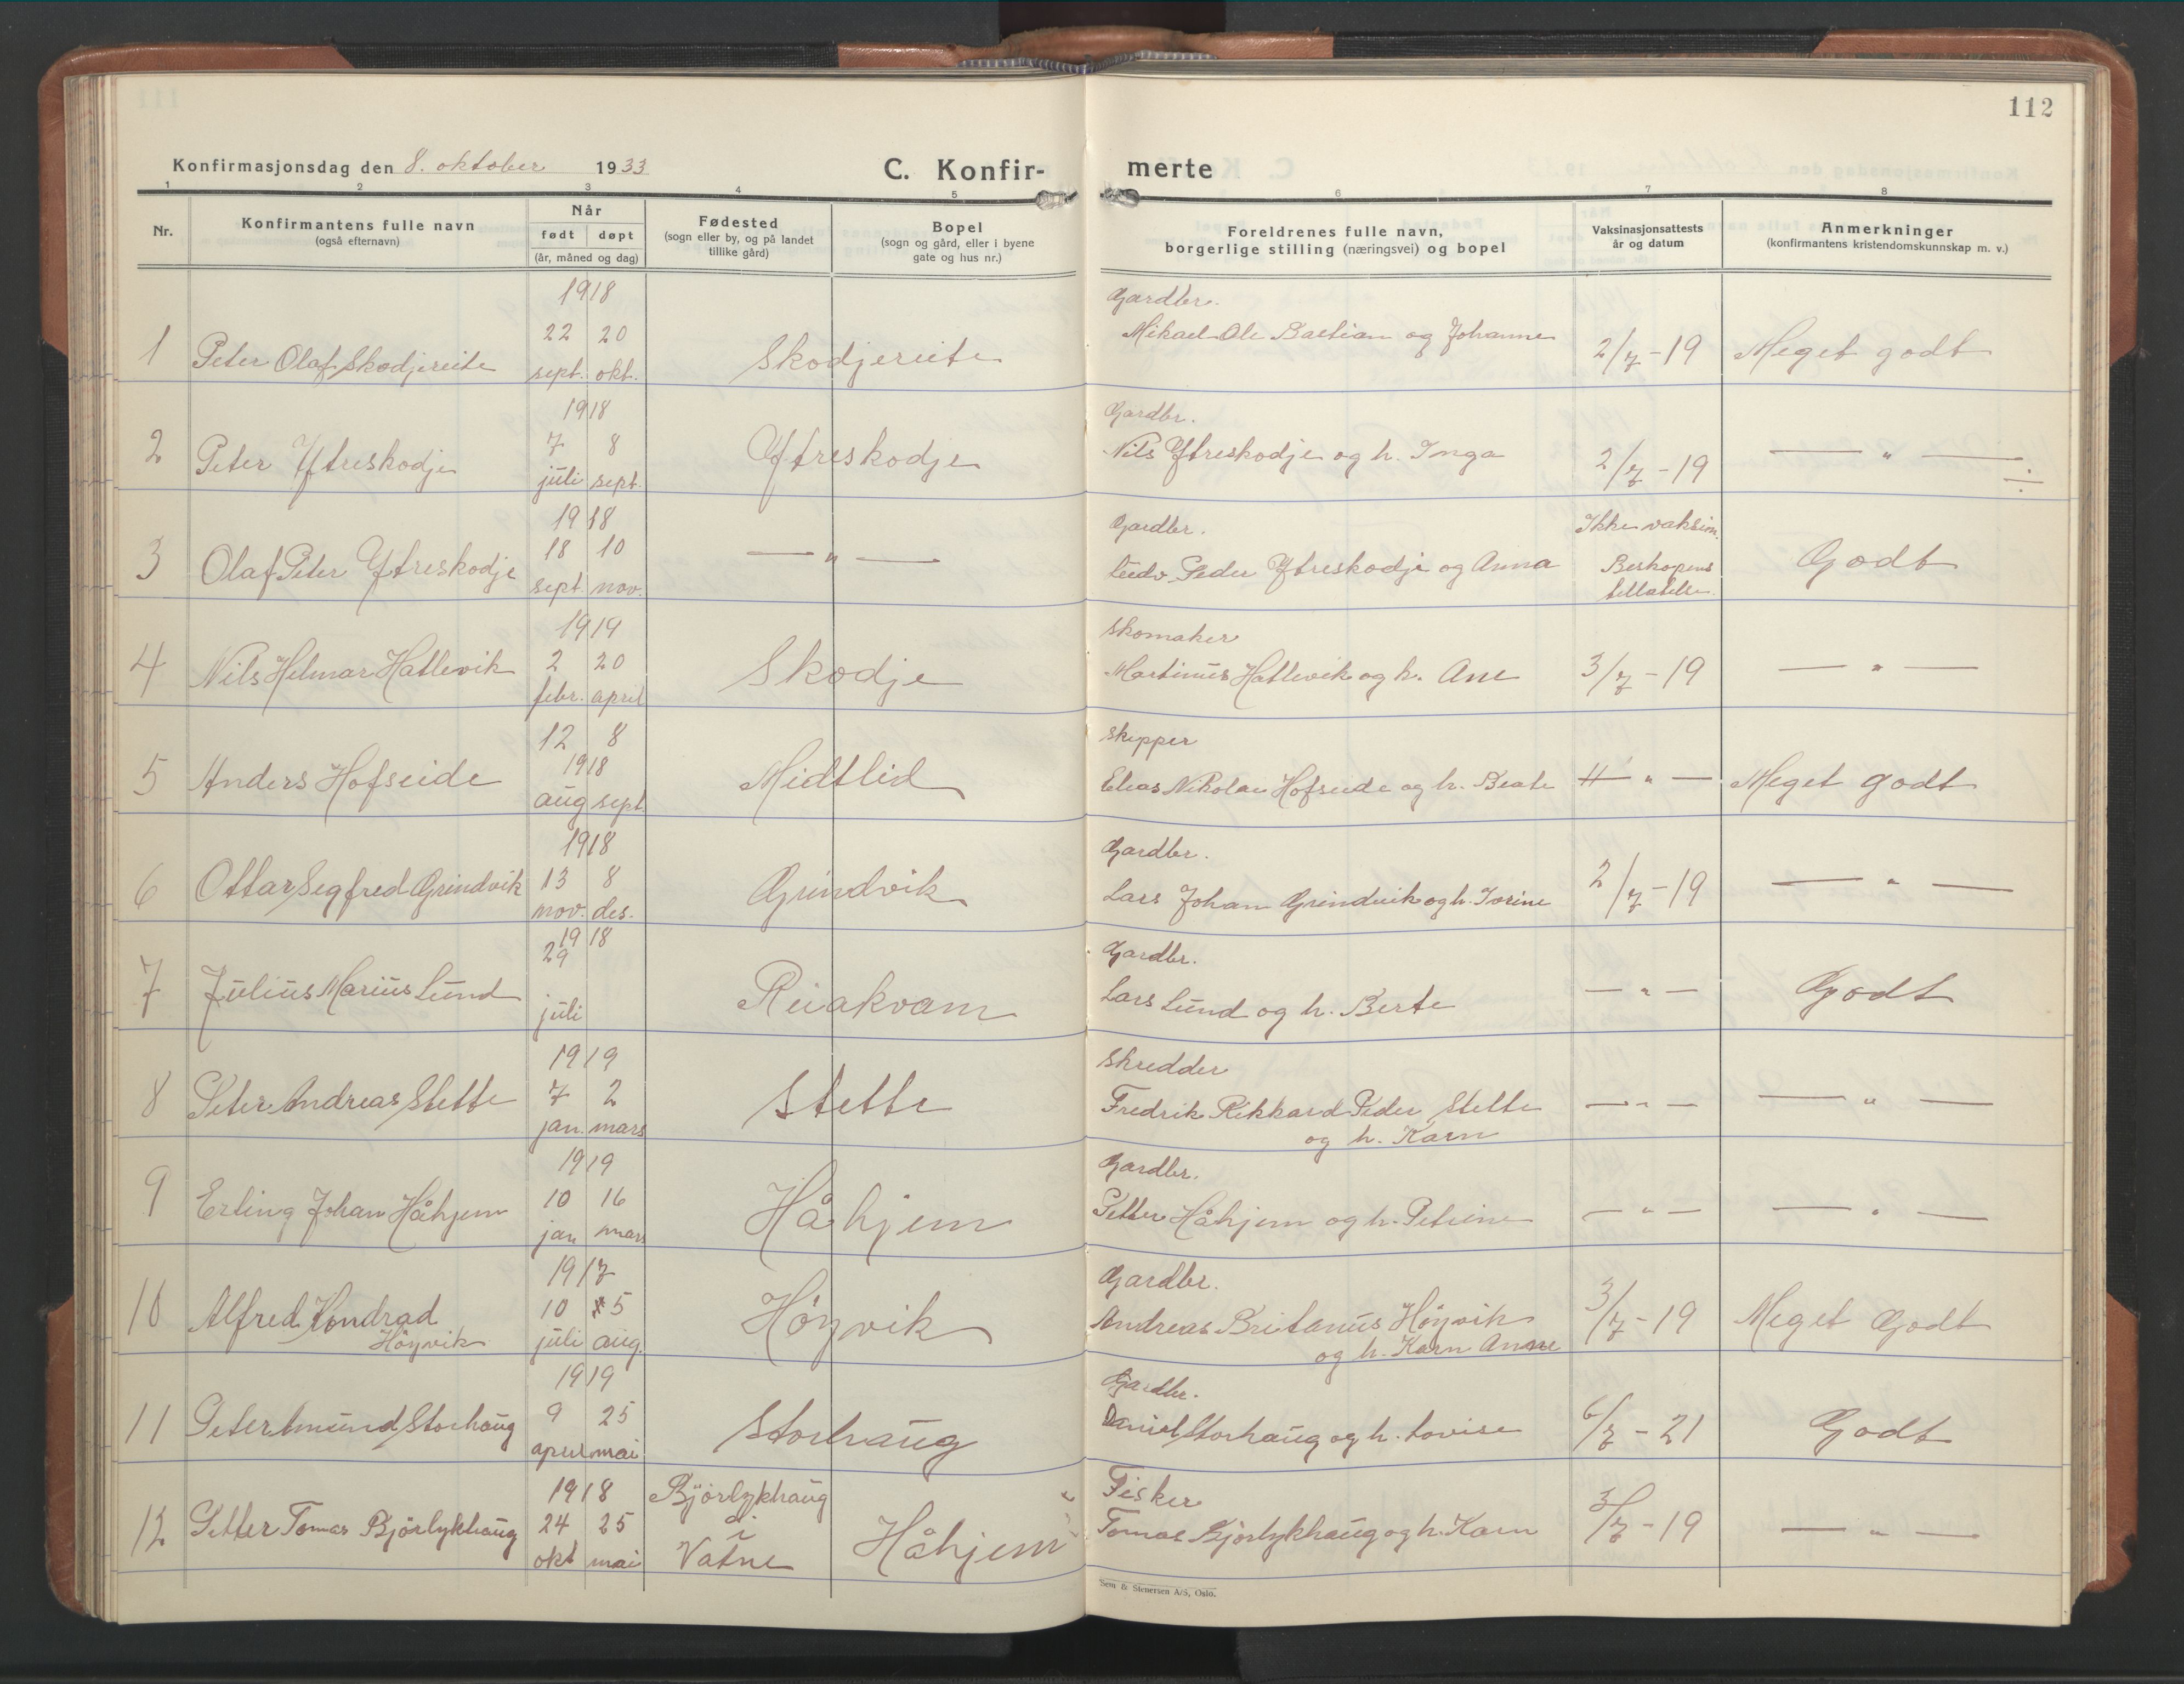 112
Konfirmasjonsdag den 8. oktober 1933
C. Konfir-
merte
1 2 3 4 5 6 7 8
Nr.
Konfirmantens fulle navn
(også efternavn)
Når
født døpt
(år, måned og dag)
Fødested
(sogn eller by, og på landet
tillike gård)
Bopel
(sogn og gård, eller i byene
gate og hus nr.)
Foreldrenes fulle navn,
borgerlige stilling (næringsvei) og bopel
Vaksinasjonsattests
år og datum
Anmerkninger
(konfirmantens kristendomskunnskap m. v.)
1918 Gardbr.
22 20 Mikael Ole Bastian og Johanne
1 Peter Olaf Skodjereite sept. okt. Skodjereite 2/7-19 Meget godt
1918 Gardbr.
2 Peter Ytreskodje 7 8 Ytreskodje Nils Ytreskodje og h. Inga 2/7-19 — " — ÷
juli sept.
1918 Gardbr. Ikke vaksin.
3 Olaf Peter Ytreskodje 18 10 — " — Peder Ytreskodje og Anna Biskopens Godt
sept. nov. tillatelse.
1919 Skomaker
4 Nils Hilmar Hatlevik 2 20 Skodje Martinus Hatlevik og h. Ane 3/7-19 — " —
febr. april
12 8 Skipper
5 Anders Hofseide 1918 Midtlid Elias Nikolai Hofseide og h. Beate — " — Meget godt
aug sept
1918 Gardbr.
6 Ottar Sigfred Grindvik 13 8 Grindvik Lars Johan Grindvik og h. Torine 2/7-19 — " —
nov. des.
1918 Gardbr.
29
7 Julius Marius Lund juli Ruakvam Lars Lund og h. Berte — " — Godt
1919 Skredder
8 Peter Andreas Stette 7 2 Stette Fredrik Rikkard Peder Stette — " — — " —
jan. mars og h. Karn
1919 Gardbr.
9 Erling Johan Håhjem 10 16 Håhjem Petter Håhjem og h. Petrine — " — — " —
jan mars
1917 Gardbr.
10 Alfred Kondrad 10 5 Höyvik Andreas Britanus Höyvik 3/7-19 Meget Godt
Höyvik juli aug. og h. Karn Anne
1919 Gardbr.
11 Peter Amund Storhaug 9 25 Storhaug Daniel Storhaug og h. Lovise 6/7-21 Godt
april mai
1918 Björlykhaug Fisker
12 Petter Tomas Björlykhaug 24 25 i Håhjem Tomas Björlykhaug og h. Karn 3/7-19 — " —
okt mai Vatne
Sem & Stenersen A/S, Oslo.